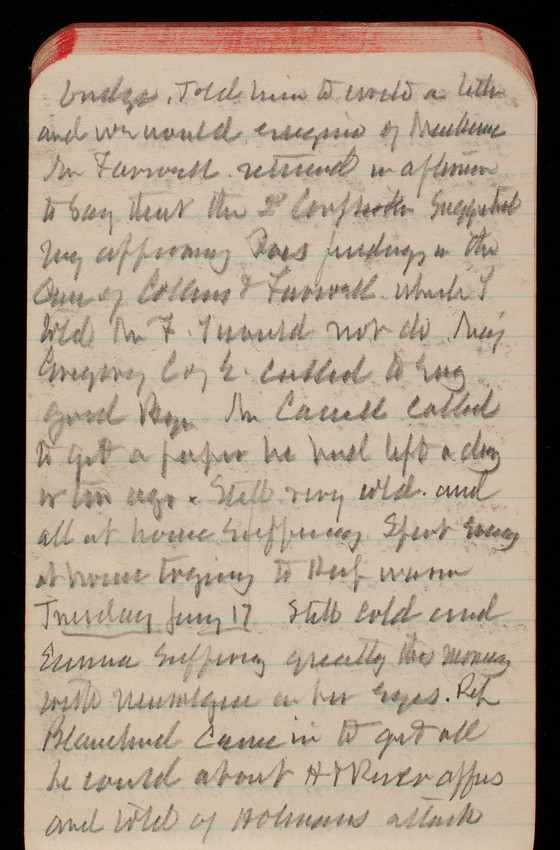 bridge. Told him to write a letter
and we would enquire of Meulener
Mr Farwell returned in afternoon
to say that the 2d Comptroller suggested
my approving Pors findings in the
Case of Collins & Farwell which I
told Mr F. I would not do Maj
Gregory C of E. called to say
good bye Mr Carroll called
to get a paper he had left a day
or two ago. Still very cold. and
all at home suffering. Spent Evening
at home trying to keep warm
Tuesday Jany 17 Still cold and
Emma suffering greatly this morning
with neuralgia in her eyes. Rep
Blanchard came in to get all
he could about H & River affrs
and told of Holmans attack